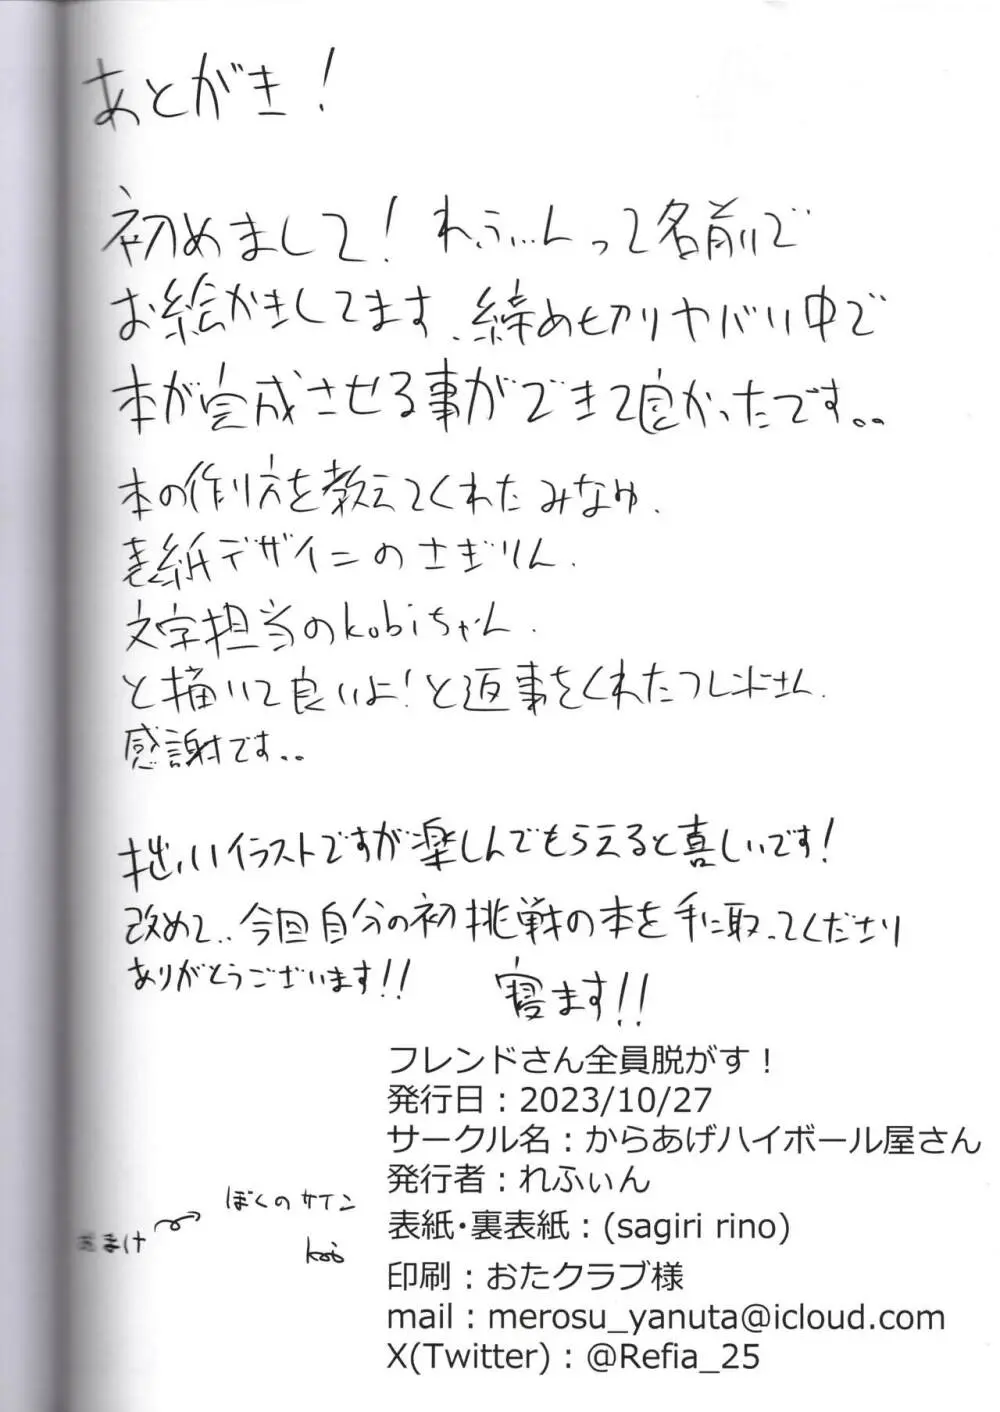 あとがき!
初めまして!れふぃんって名前で
お絵かきしてます、締め切りヤバい中で
本が完成させる事ができて良かったです。。
本の作り方を教えてくれたみなゆ、
表紙デザインのさぎりん、
文字担当のkobiちゃん、
と描いて良いよ!と返事をくれたフレンドさん、
感謝です..
拙いイラストですが楽しんでもらえると喜しいです!
改めて..今回自分の初挑戦の本を手に取ってくださり
ありがとうございます!!
寝ます!!
フレンドさん全員脱がす!
発行日:2023/10/27
サークル名:からあげハイボール屋さん
発行者:れふぃん
表紙・裏表紙:(sagiri rino)
印刷:おたクラブ様
mail:merosu_yanuta@icloud.com
X(Twitter):@Refia_25
おまけ
ぼくのサイン